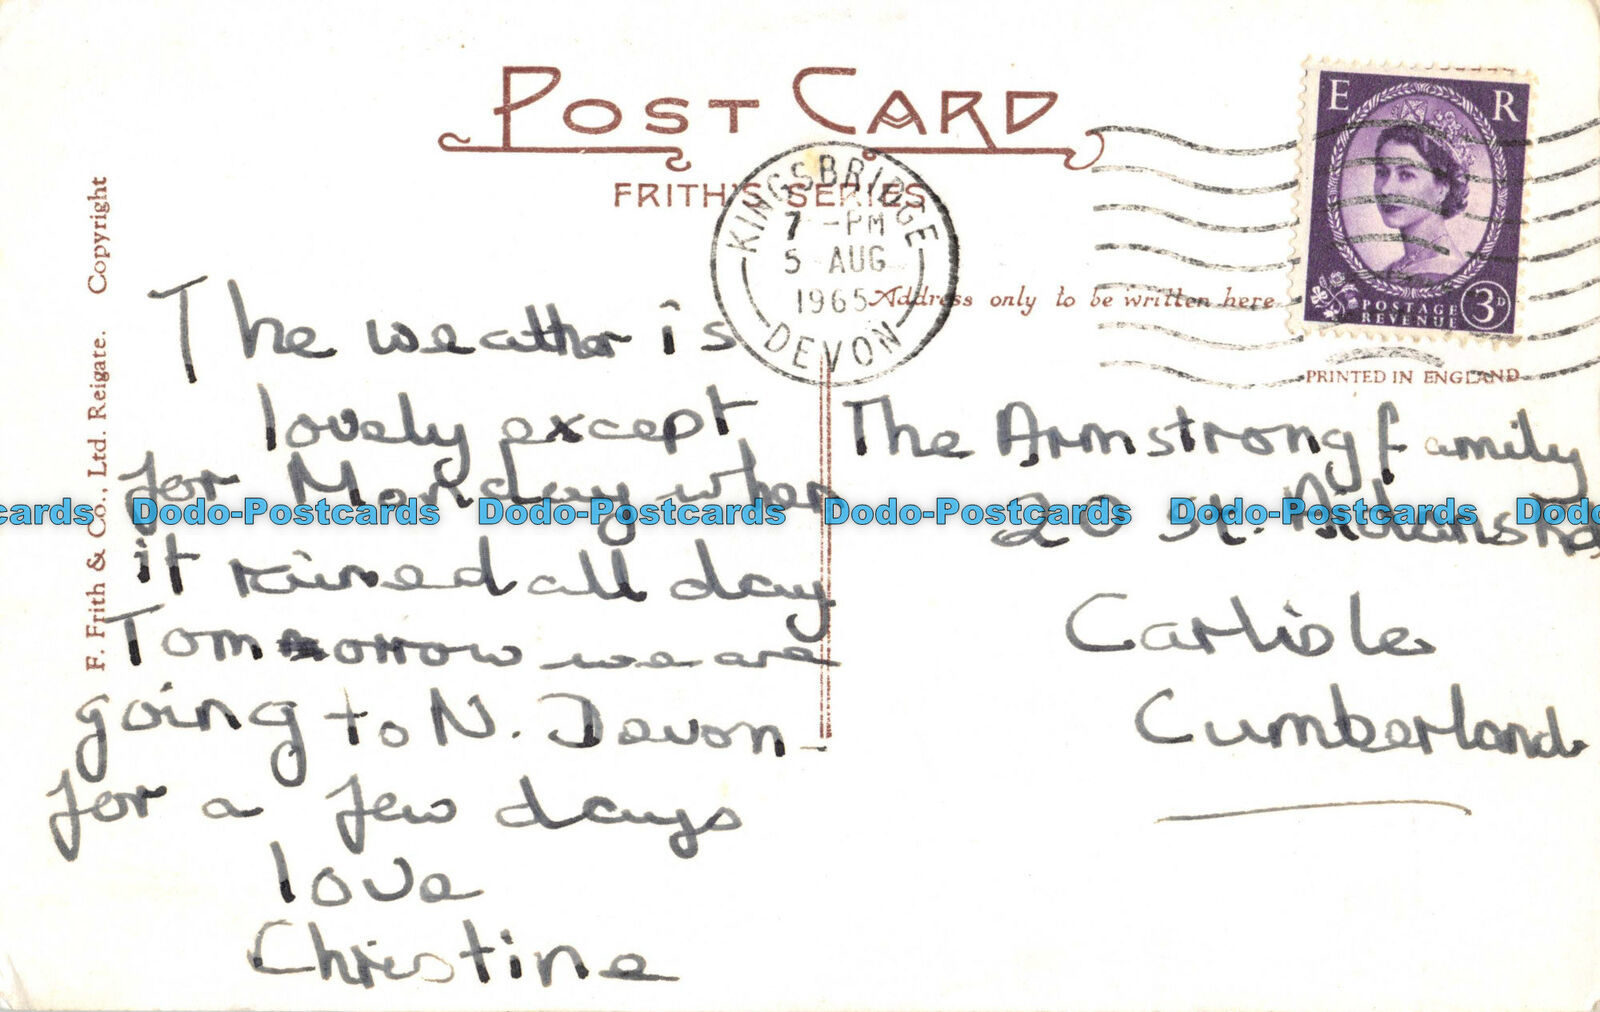 POST CARD
FRITH'S SERIES
KINGSBRIDGE
7 -PM
5 AUG
1965
DEVON
E R
POSTAGE
REVENUE
3D
Address only to be written here
PRINTED IN ENGLAND
F. Frith & Co., Ltd. Reigate. Copyright
The weather is
lovely except
for Monday when
it rained all day
Tomorrow we are
going to N. Devon
for a few days
love
Christine
The Armstrong family
20 St. Rd
Carlisle
Cumberland
Dodo-Postcards Dodo-Postcards Dodo-Postcards Dodo-Postcards